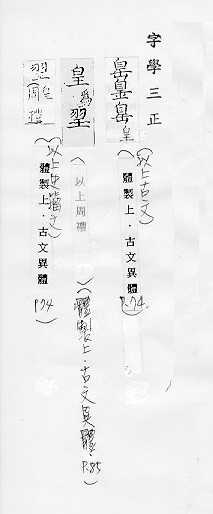 字學三正
皇（以上古文）（體製上．古文異體P.74）
皇為翌（以上周禮）（體製上．古文異體P.85）
（以上史籀文）（體製上．古文異體P.74）